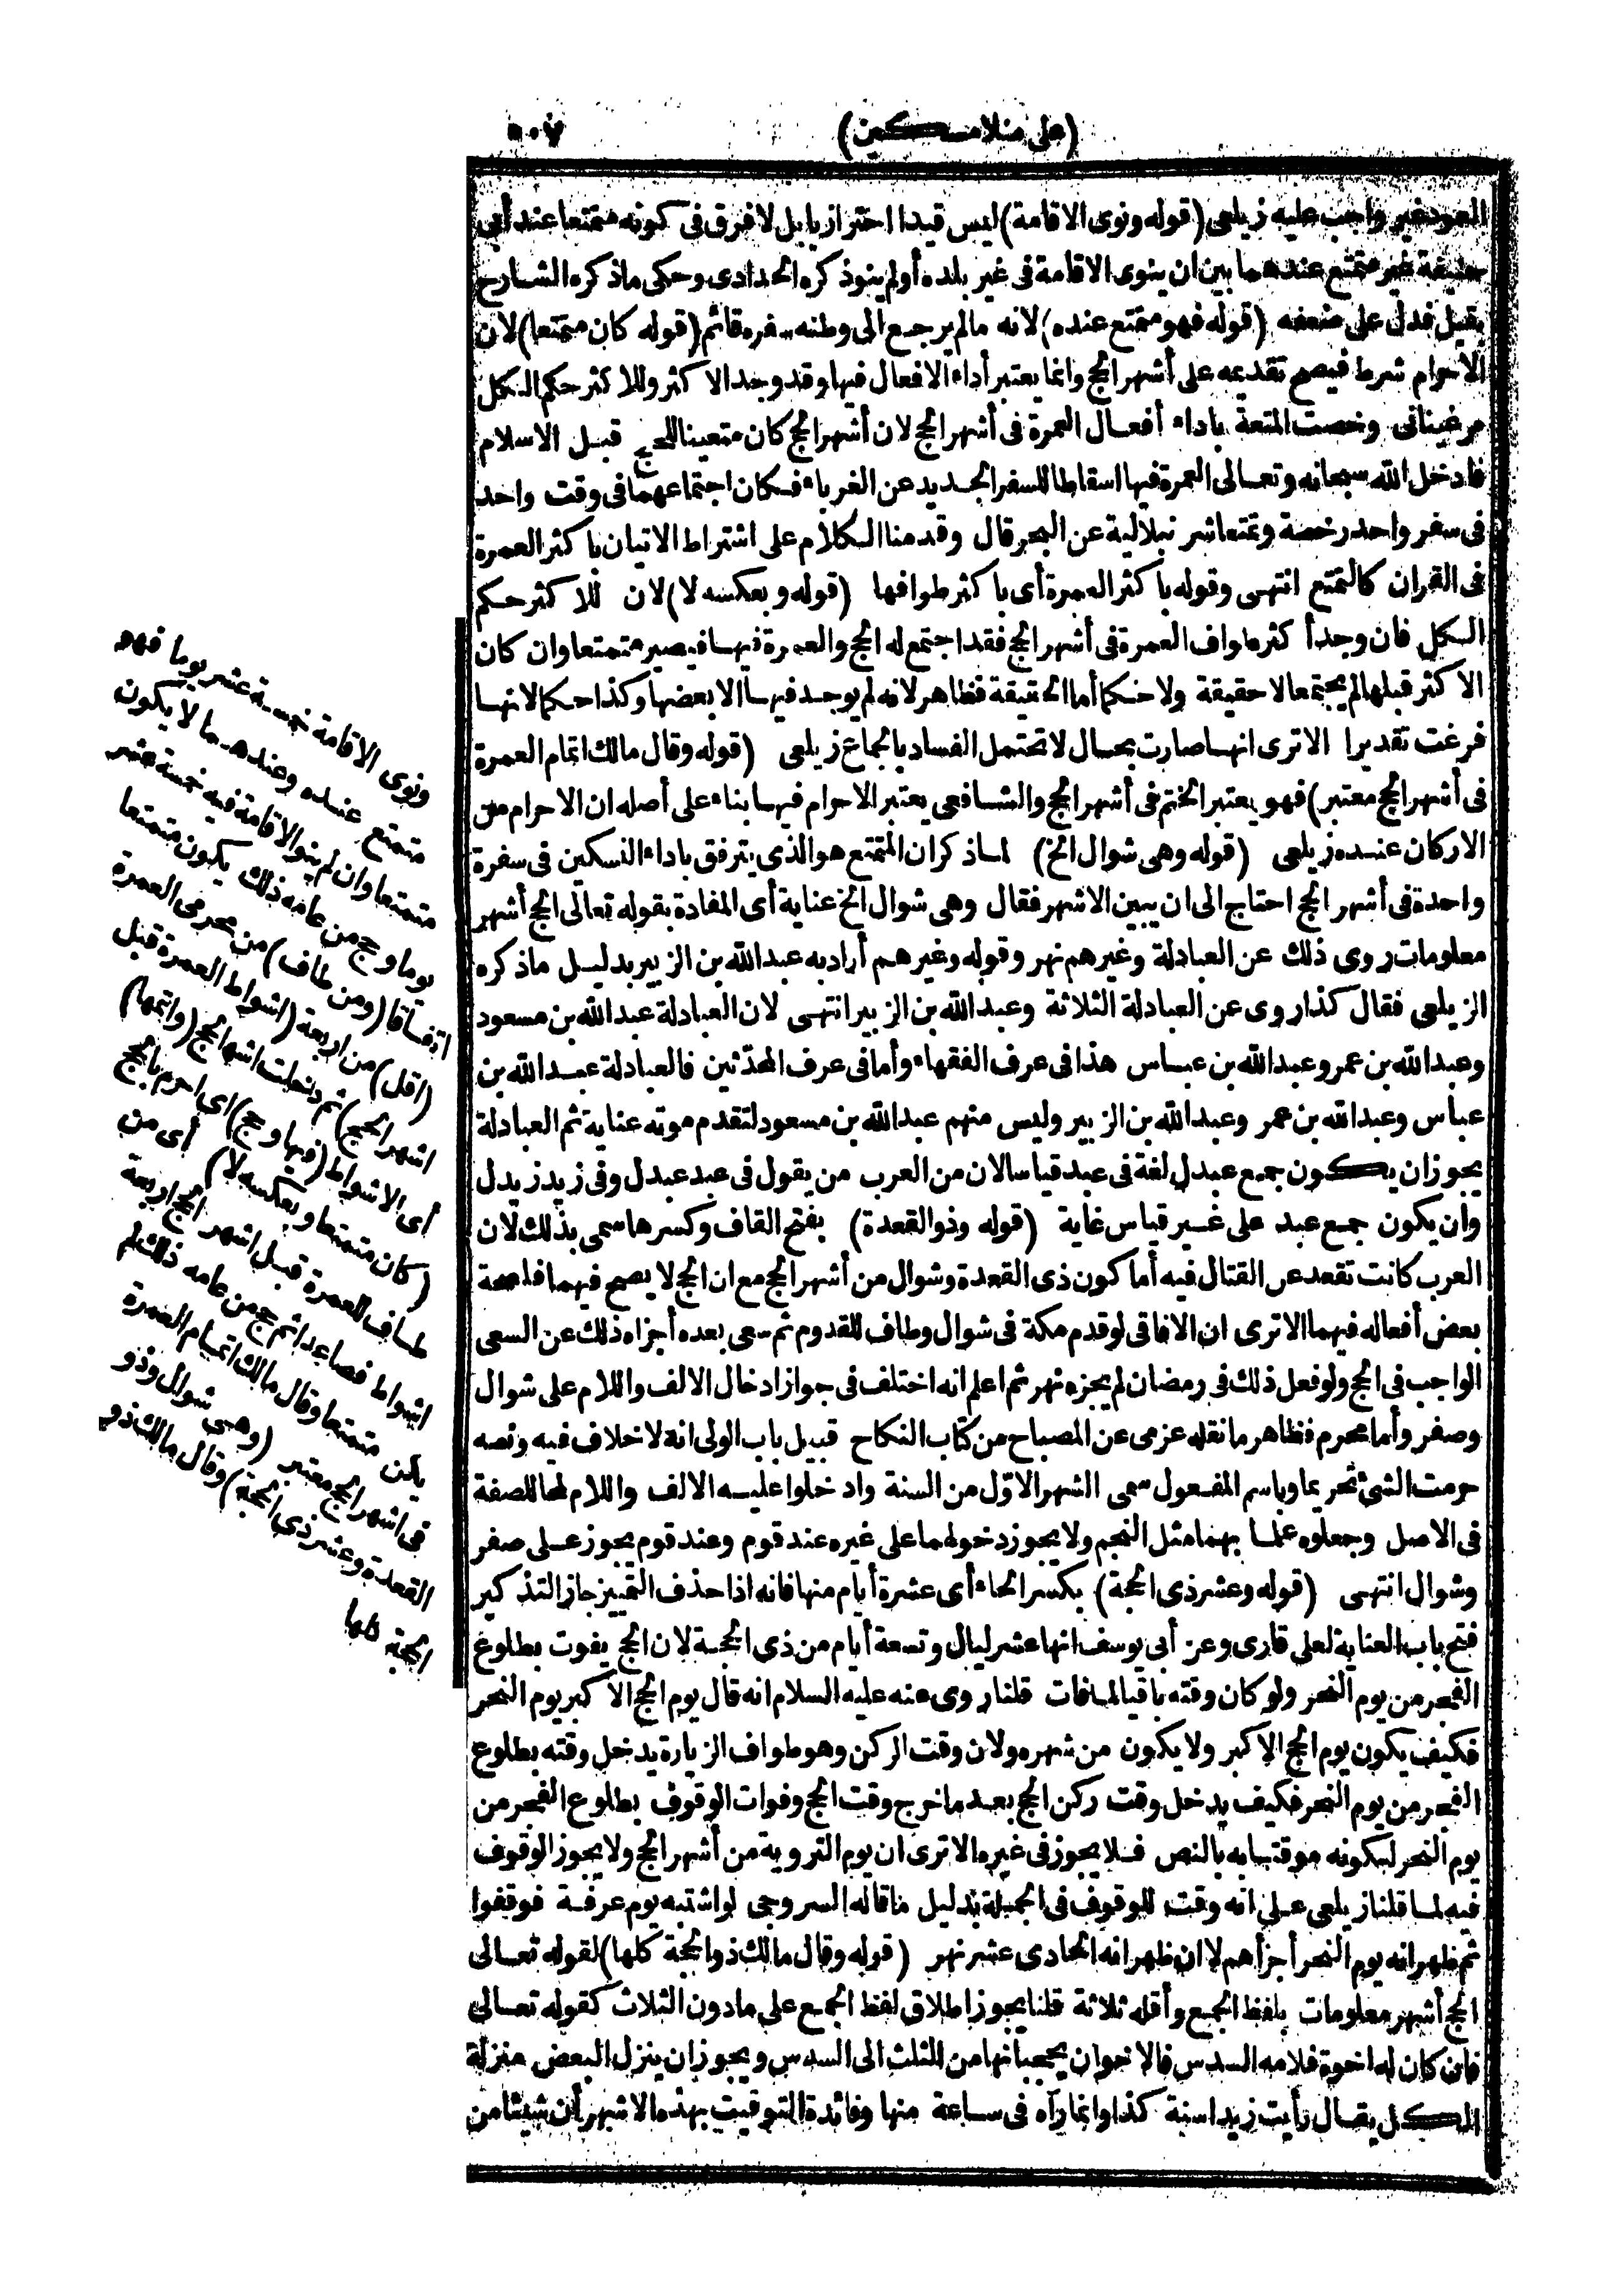 (على منلا مسكين) ٥٠٧
العود غير واجب عليه زيلعى (قوله ونوى الاقامة) ليس قيدا احترازيا بل لا فرق فى كونه متمتعا عند أبى
حنيفة غير متمتع عندهما بين ان ينوى الاقامة فى غير بلده أولم ينو ذكره الحدادى وحكى ماذكره الشارح
بقيل فدل على ضعفه (قوله فهو متمتع عنده) لانه مالم يرجع الى وطنه سفره قائم (قوله كان متمتعا) لان
الاحرام شرط فيصح تقديمه على أشهر الحج وانما يعتبر أداء الافعال فيها وقد وجد الاكثر وللاكثر حكم الكل
مرغينانى وخصت المتعة باداء أفعال العمرة فى أشهر الحج لان أشهر الحج كان متعينا للحج قبل الاسلام
فادخل الله سبحانه وتعالى العمرة فيها اسقاطا للسفر الجديد عن الغرباء فكان اجتماعهما فى وقت واحد
فى سفر واحد رخصة وتمتعا شرنبلالية عن البحر قال وقدمنا الكلام على اشتراط الاتيان باكثر العمرة
فى القران كالتمتع انتهى وقوله باكثر العمرة أى باكثر طوافها (قوله وبعكسه لا) لان للاكثر حكم
الكل فان وجد أكثر طواف العمرة فى أشهر الحج فقد اجتمع له الحج والعمرة فيها فيصير متمتعا وان كان
الاكثر قبلها لم يجتمعا لا حقيقة ولا حكما أما الحقيقة فظاهر لانه لم يوجد فيها الا بعضها وكذا حكما لانها
فرغت تقديرا الا ترى انها صارت بحال لا تحتمل الفساد بالجماع زيلعى (قوله وقال مالك اتمام العمرة
فى أشهر الحج معتبر) فهو يعتبر الختم فى أشهر الحج والشافعى يعتبر الاحرام فيها بناء على أصله ان الاحرام من
الاركان عنده زيلعى (قوله وهى شوال الخ) لماذكر ان المتمتع هو الذى يترفق باداء النسكين فى سفرة
واحدة فى أشهر الحج احتاج الى ان يبين الاشهر فقال وهى شوال الخ عناية أى المفادة بقوله تعالى الحج أشهر
معلومات روى ذلك عن العبادلة وغيرهم نهر وقوله وغيرهم أراد به عبد الله بن الزبير بدليل ماذكره
الزيلعى فقال كذا روى عن العبادلة الثلاثة وعبد الله بن الزبير انتهى لان العبادلة عبد الله بن مسعود
وعبد الله بن عمر وعبد الله بن عباس هذا فى عرف الفقهاء وأما فى عرف المحدّثين فالعبادلة عبد الله بن
عباس وعبد الله بن عمر وعبد الله بن الزبير وليس منهم عبد الله بن مسعود لتقدم موته عناية ثم العبادلة
يجوز ان يكون جمع عبدل لغة فى عبد قياسا لان من العرب من يقول فى عبد عبدل وفى زيد زيدل
وان يكون جمع عبد على غير قياس غاية (قوله وذوالقعدة) بفتح القاف وكسرها سمى بذلك لان
العرب كانت تقعد عن القتال فيه أما كون ذى القعدة وشوال من أشهر الحج مع ان الحج لا يصح فيهما فلصحة
بعض أفعاله فيهما الا ترى ان الافاقى لو قدم مكة فى شوال وطاف للقدوم ثم سعى بعده أجزاه ذلك عن السعى
الواجب فى الحج ولو فعل ذلك فى رمضان لم يجزه نهر ثم اعلم انه اختلف فى جواز ادخال الالف واللام على شوال
وصفر وأما محرم فظاهر ما نقله عزمى عن المصباح من كتاب النكاح قبيل باب الولى انه لا خلاف فيه ونصه
حرمت الشئ تحريما وباسم المفعول سمى الشهر الاوّل من السنة وادخلوا عليه الالف واللام لمحا للصفة
فى الاصل وجعلوه علما بهما مثل النجم ولا يجوز دخولهما على غيره عند قوم وعند قوم يجوز على صفر
وشوال انتهى (قوله وعشر ذى الحجة) بكسر الحاء أى عشرة أيام منها فانه اذا حذف التمييز جاز التذكير
فتح باب العناية لعلى قارى وعن أبى يوسف انها عشر ليال وتسعة أيام من ذى الحجة لان الحج يفوت بطلوع
الفجر من يوم النحر ولو كان وقته باقيا لما فات قلنا روى عنه عليه السلام انه قال يوم الحج الاكبر يوم النحر
فكيف يكون يوم الحج الاكبر ولا يكون من شهره ولان وقت الركن وهو طواف الزيارة يدخل وقته بطلوع
الفجر من يوم النحر فكيف يدخل وقت ركن الحج بعد ما خرج وقت الحج وفوات الوقوف بطلوع الفجر من
يوم النحر لكونه موقتا به بالنص فلا يجوز فى غيره الا ترى ان يوم التروية من أشهر الحج ولا يجوز الوقوف
فيه لما قلنا زيلعى على انه وقت للوقوف فى الجملة بدليل ما قاله السروجى لو اشتبه يوم عرفة فوقفوا
ثم ظهر انه يوم النحر أجزأهم لا ان ظهر انه الحادى عشر نهر (قوله وقال مالك ذوالحجة كلها) لقوله تعالى
الحج أشهر معلومات بلفظ الجمع وأقله ثلاثة قلنا يجوز اطلاق لفظ الجمع على مادون الثلاث كقوله تعالى
فان كان له اخوة فلامه السدس فالاخوان يحجبانها من الثلث الى السدس ويجوز ان ينزل البعض منزلة
الكل يقال رأيت زيدا سنة كذا وانما رآه فى ساعة منها وفائدة التوقيت بهذه الاشهر أن شيئا من
ونوى الاقامة خمسة عشر يوما فهو
متمتع عنده وعندهما لا يكون
متمتعا وان لم ينو الاقامة فيه خمسة عشر
يوما وحج من عامه ذلك يكون متمتعا
اتفاقا (ومن طاف) من محرمى العمرة
(اقل) من اربعة (اشواط العمرة قبل
اشهر الحج) ثم دخلت اشهر الحج (واتمها)
أى الاشواط (فيها وحج) اى احرم بالحج
(كان متمتعا وبعكسه لا) أى من
طاف للعمرة قبل اشهر الحج اربعة
اشواط فصاعدا ثم حج من عامه ذلك لم
يكن متمتعا وقال مالك اتمام العمرة
فى اشهر الحج معتبر (وهى شوال وذو
القعدة وعشر ذى الحجة) وقال مالك ذو
الحجة كلها